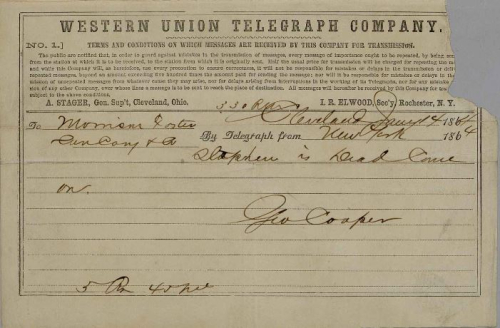 WESTERN UNION TELEGRAPH COMPANY.
NO. 1.) TERMS AND CONDITIONS ON WHICH MESSAGES ARE RECEIVED BY THIS COMPANY FOR TRANSMISSION.
The public are notified, that in order to guard against mistakes in the transmission of messages, every message of importance ought to be repeated, by being
from the station at which it is to be received, to the station from which it is originally sent. Half the usual price for transmission will be charged for repeating the
and while this Company will, as heretofore, use every precaution to ensure correctness, it will not be responsible for mistakes or delays in the transmission or
repeated messages, beyond an amount exceeding five hundred times the amount paid for sending the message; nor will it be responsible for mistakes or delays in the
mission of unrepeated messages from whatever cause they may arise, nor for delays arising from interruptions in the working of its Telegraphs, nor for any mistake
sion of any other Company, over whose lines a message is to be sent to reach the place of destination. All messages will hereafter be received by this Company for
subject to the above conditions.
A. STAGER, Gen. Sup't, Cleveland, Ohio. I. R. ELWOOD, Sec'y, Rochester, N. Y.
Cleveland Jany 14 1864
To Morrison Foster
By Telegraph from New York 1864
Stephen is Dead Come
on.
Geo Cooper
5